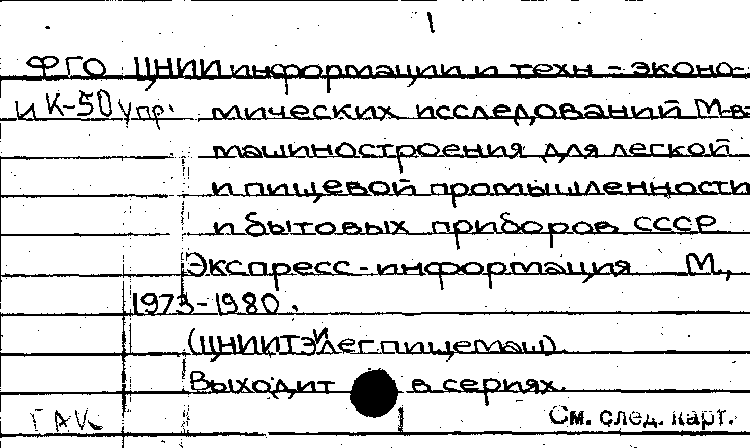 ФГО ЦНИИ информации и техн-эконо-
и К-50 упр. мических исследований М-ва
машиностроения для легкой
и пищевой промышленности
и бытовых приборов СССР
Экспресс-информация М.,
1973-1980.
(ЦНИИТЭИлегпищемаш)
Выходит в сериях.
ГАК См. след. карт.